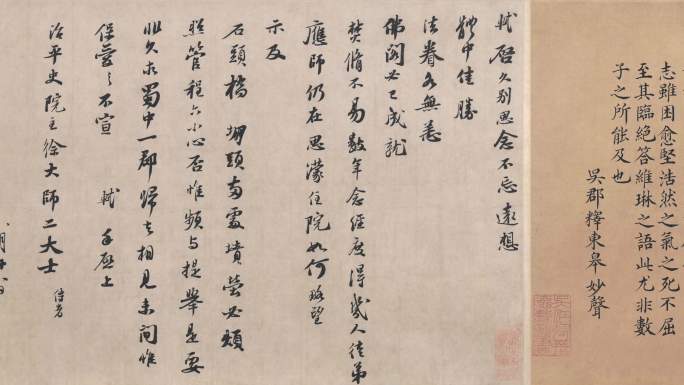 志雖困愈堅浩然之氣之死不屈
至其臨絕答維琳之語此尤非數
子之所能及也
吳郡釋東皋妙聲
軾啓久別思念不忘遠想
體中佳勝
法眷各無恙
佛閣必已成就
焚脩不易數年念經度得幾人徒弟
應師仍在思濛住院如何略望
示及
石頭橋 堋頭兩處墳塋必煩
照管程六小心否惟頻与提舉是要
非久求蜀中一郡歸去相見未間惟
保愛之不宣 軾手啓上
治平史院主徐大師二大士 侍者